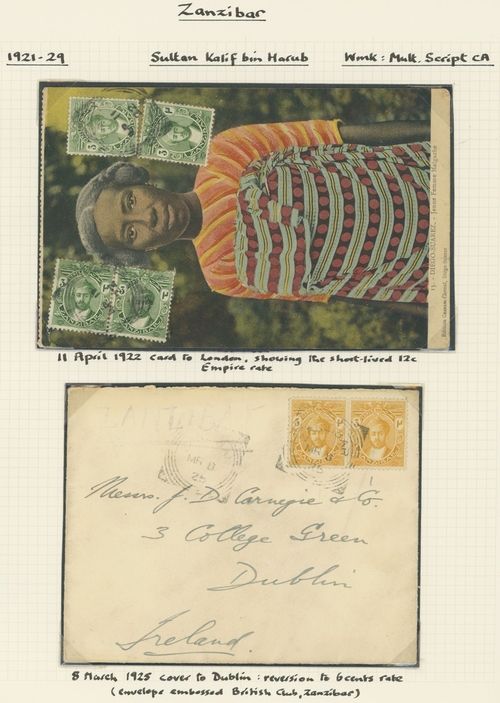 Zanzibar
1921-29 Sultan Kalif bin Harub Wmk: Mult. Script CA
DIEGO SUAREZ. - Jeune Femme Malgache
11 April 1922 card to London, showing the short-lived 12c
Empire rate
MR 8
25
Messrs. J. D. Carnegie & Co.
3 College Green
Dublin
Ireland.
8 March 1925 cover to Dublin: reversion to 6cents rate
(envelope embossed British Club, Zanzibar)